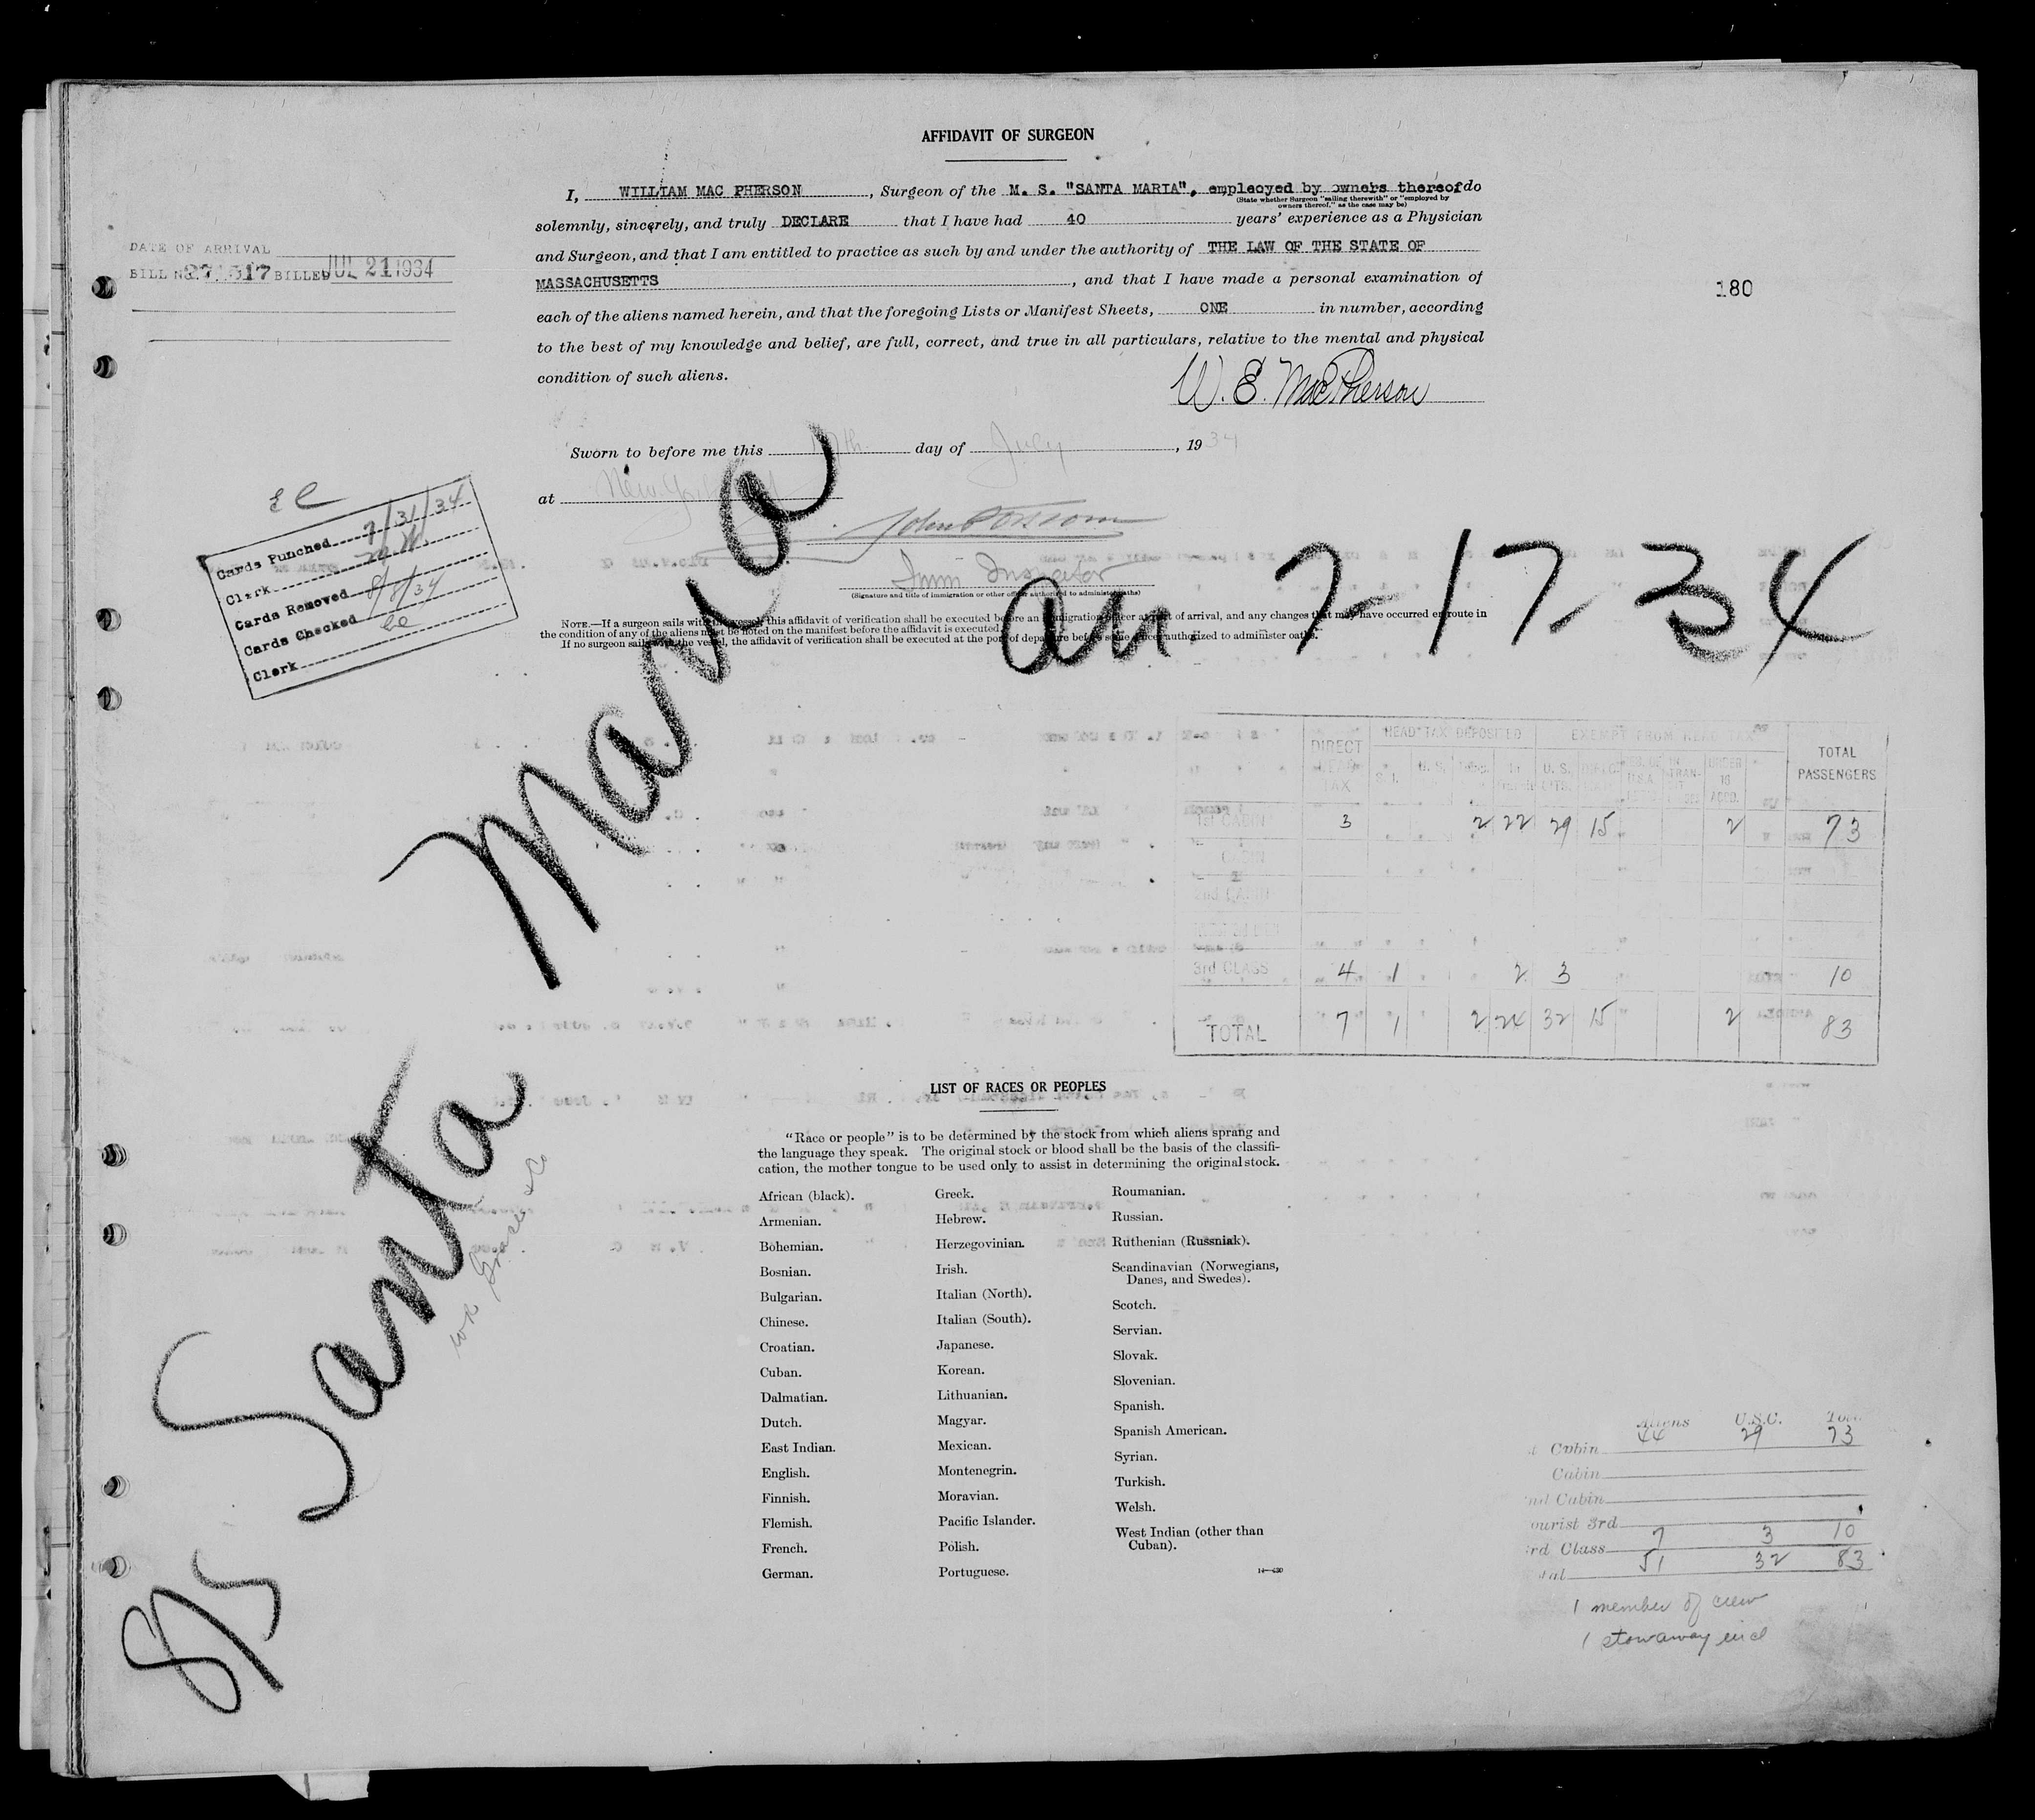 AFFIDAVIT OF SURGEON
I, WILLIAM MAC PHERSON, Surgeon of the M. S. "SANTA MARIA", emplaoyed by owners thereof do
(State whether Surgeon "sailing therewith" or "employed by
owners thereof," as the case may be)
solemnly, sincerely, and truly DECLARE that I have had 40 years' experience as a Physician
and Surgeon, and that I am entitled to practice as such by and under the authority of THE LAW OF THE STATE OF
MASSACHUSETTS, and that I have made a personal examination of
each of the aliens named herein, and that the foregoing Lists or Manifest Sheets, ONE in number, according
to the best of my knowledge and belief, are full, correct, and true in all particulars, relative to the mental and physical
condition of such aliens.
W. E. MacPherson
DATE OF ARRIVAL
BILL No. BILLED JUL 21 1934
180
Sworn to before me this day of July, 1934
at New York
Imm Inspector
(Signature and title of immigration or other officer authorized to administer oaths)
Cards Punched 7/31/34
Clerk
Cards Removed 8/8/34
Cards Checked
Clerk
NOTE.—If a surgeon sails with the vessel, this affidavit of verification shall be executed before an immigration officer at port of arrival, and any changes that may have occurred en route in
the condition of any of the aliens must be noted on the manifest before the affidavit is executed.
If no surgeon sails with the vessel, the affidavit of verification shall be executed at the port of departure before some officer authorized to administer oaths.
S/S Santa Maria
arr 7-17-34
DIRECT HEAD TAX HEAD TAX DEPOSITED EXEMPT FROM HEAD TAX TOTAL PASSENGERS
1st CABIN 3 2 22 29 15 2 73
CABIN
2nd CABIN
3rd CLASS 4 1 2 3 10
TOTAL 7 1 2 24 32 15 2 83
LIST OF RACES OR PEOPLES
"Race or people" is to be determined by the stock from which aliens sprang and
the language they speak. The original stock or blood shall be the basis of the classifi-
cation, the mother tongue to be used only to assist in determining the original stock.
African (black).
Armenian.
Bohemian.
Bosnian.
Bulgarian.
Chinese.
Croatian.
Cuban.
Dalmatian.
Dutch.
East Indian.
English.
Finnish.
Flemish.
French.
German.
Greek.
Hebrew.
Herzegovinian.
Irish.
Italian (North).
Italian (South).
Japanese.
Korean.
Lithuanian.
Magyar.
Mexican.
Montenegrin.
Moravian.
Pacific Islander.
Polish.
Portuguese.
Roumanian.
Russian.
Ruthenian (Russniak).
Scandinavian (Norwegians,
Danes, and Swedes).
Scotch.
Servian.
Slovak.
Slovenian.
Spanish.
Spanish American.
Syrian.
Turkish.
Welsh.
West Indian (other than
Cuban).
14—430
Aliens U.S.C. Total
Cabin 44 29 73
Cabin
2nd Cabin
Tourist 3rd
3rd Class 7 3 10
Total 51 32 83
1 member of crew
1 stowaway incl